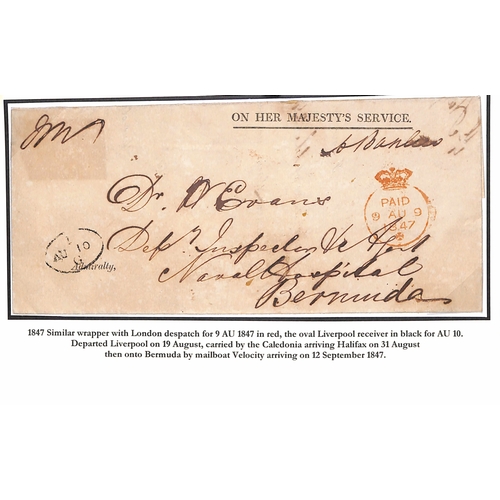 ON HER MAJESTY'S SERVICE.
Dr. W Evans
PAID
9 AU 9
1847
AU 10
Admiralty,
Dep.y Inspector &c &c
Naval Hospital
Bermuda
1847 Similar wrapper with London despatch for 9 AU 1847 in red, the oval Liverpool receiver in black for AU 10.
Departed Liverpool on 19 August, carried by the Caledonia arriving Halifax on 31 August
then onto Bermuda by mailboat Velocity arriving on 12 September 1847.